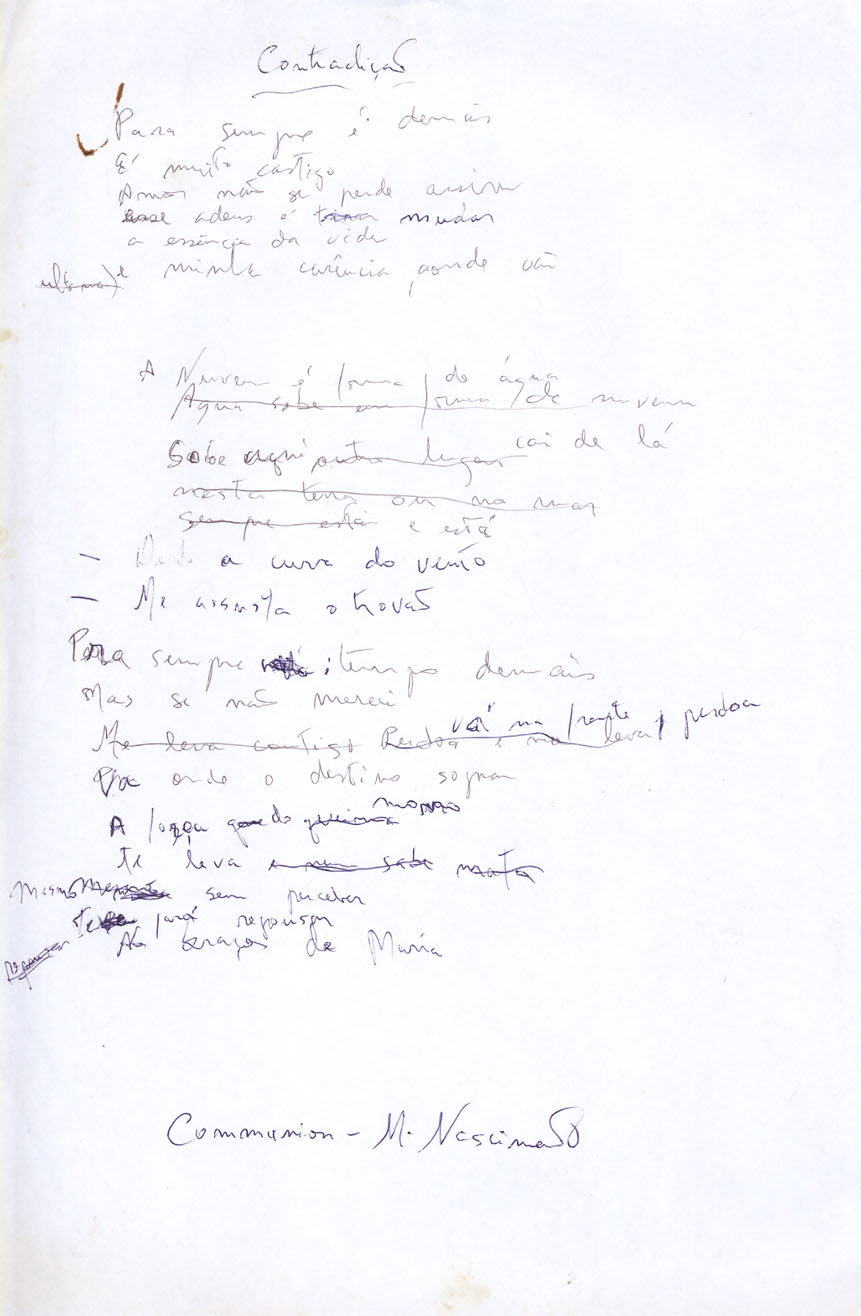 Contradição
Para sempre é demais
É muito castigo
Amor não se perde assim
esse adeus é mudar
a essência da vida
e minha carência, aonde vão
A Nuvem é forma do água
Água sobe em forma de nuvem
Sobe aqui outro lugar cai de lá
nesta terra ou no mar
sempre está e está
- a curva do vento
- Me assusta o trovão
Para sempre é tempo demais
Mas se não mereci
vá na frente perdoa
Me leva contigo Perdoa e me leva
Pra onde o destino soprar
A força do
te leva e nem sabe
Mesmo sem perceber
Te fará repousar
repousar
Nos braços de Maria
Communion - M. Nascimento